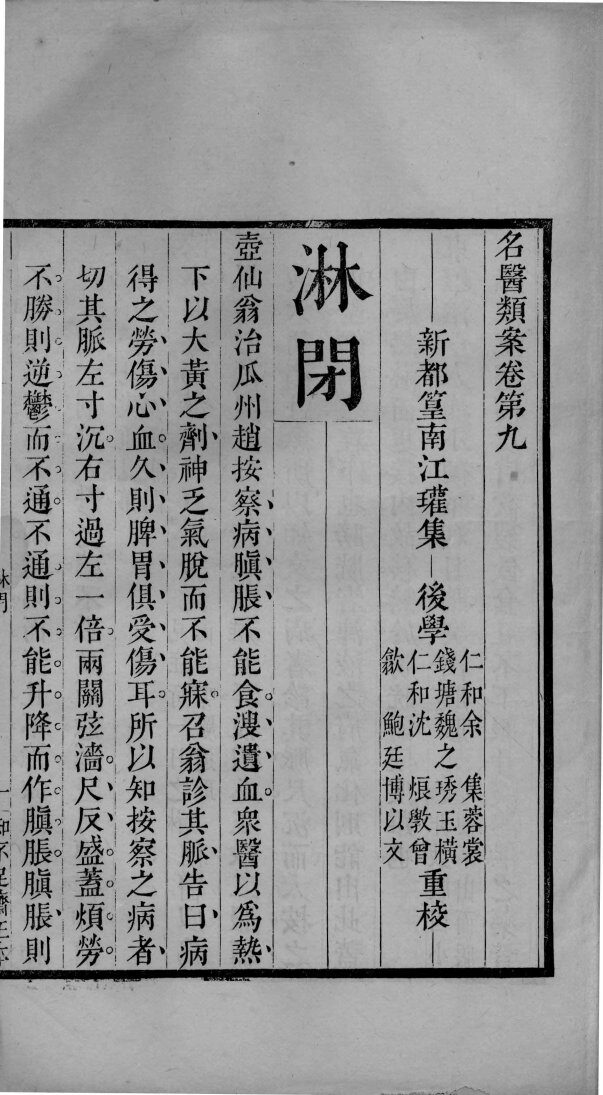 名醫類案卷第九
新都篁南江瓘集 後學
仁和余 集蓉裳
錢塘魏之琇玉橫
仁和沈 烺敦曾
歙 鮑廷博以文
重校
淋閉
壺仙翁治瓜州趙按察病䐜脹不能食溲遺血衆醫以爲熱
下以大黃之劑神乏氣脫而不能寐召翁診其脈告曰病
得之勞傷心血久則脾胃俱受傷耳所以知按察之病者
切其脈左寸沉右寸過左一倍兩關弦濇尺反盛蓋煩勞
不勝則逆鬱而不通不通則不能升降而作䐜脹䐜脹則